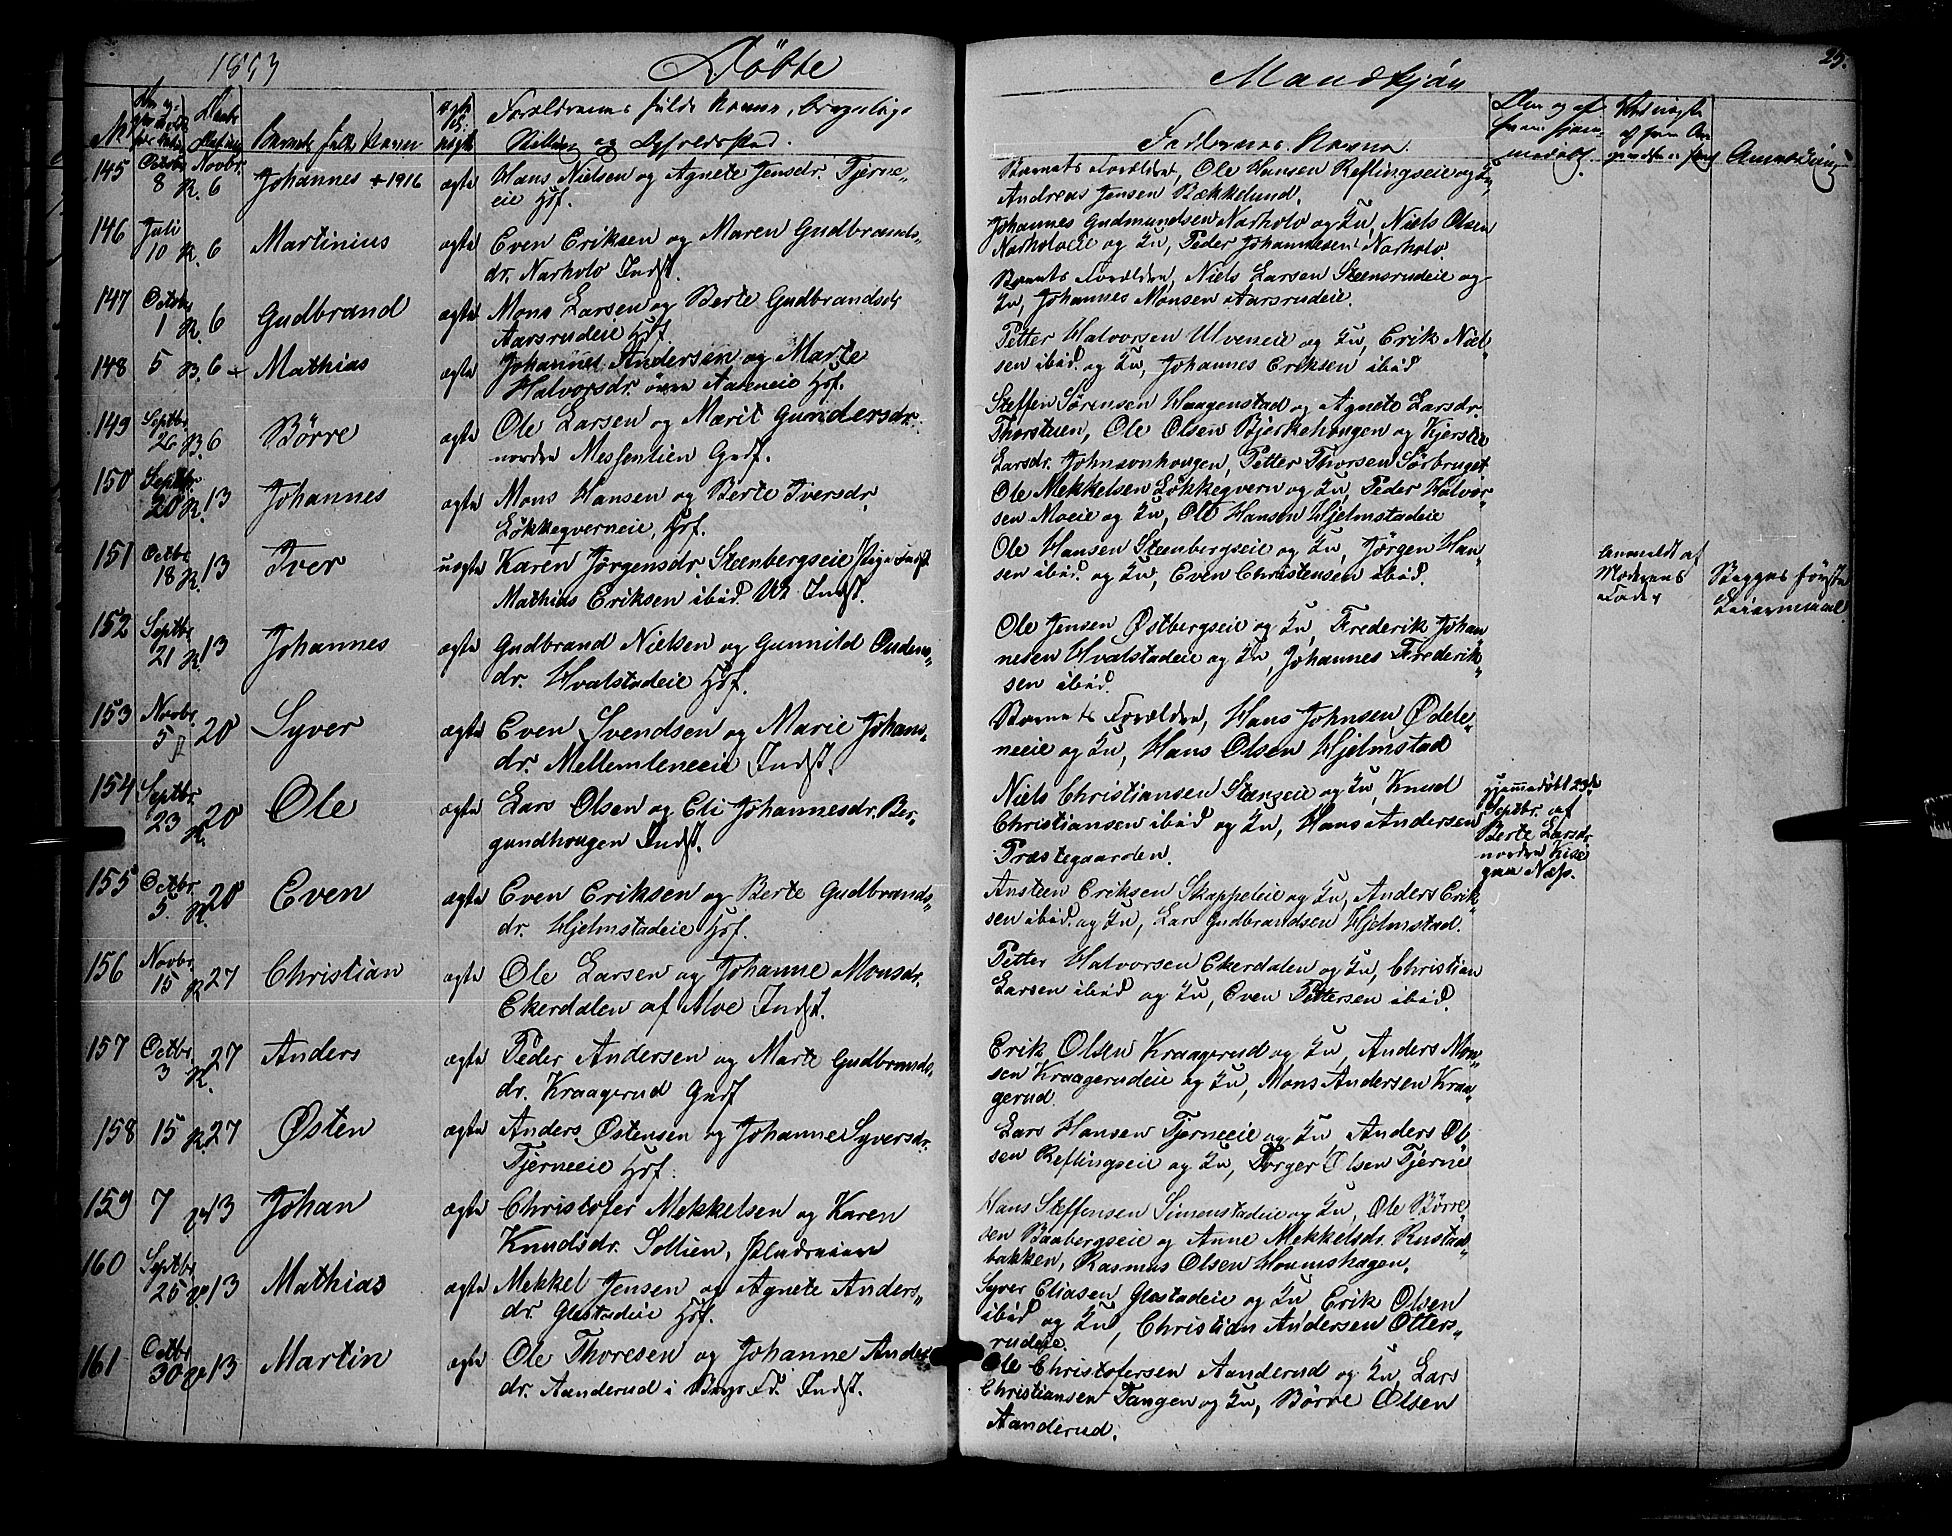 1853 Døbte
Mandkjøn 25.
No
Barnets fulde Navn
Forældrenes fulde Navne, borgerlige
Stilling og Opholdssted.
Faddernes Navne.
Anmærkning
145 Octbr. 8 Novbr. K. 6 Johannes + 1916 ægte Hans Nielsen og Agnete Jensdr. Tjerne-
eie Hsf.
Barnets Forældre, Ole Hansen Reflingseie og Ku,
Andreas Jensen Bækkelund.
146 Juli 10 K. 6 Martinius ægte Even Eriksen og Maren Gudbrands-
dr. Narholo Indst.
Johannes Gudmundsen Narholo og Ku, Niels Olsen
Narholoeie og Ku, Peder Johannesen Narholo.
147 Octbr. 1 K. 6 Gudbrand ægte Mons Larsen og Berte Gudbrandsdr
Aarsrudeie Hsf.
Barnets Forældre, Niels Larsen Steensrudeie og
Ku, Johannes Monsen Aarsrudeie.
148 5 B. 6 Mathias ægte Johannes Andersen og Marte
Halvorsdr. øvre Hsf.
Petter Halvorsen Ulveneie og Ku, Erik Niel-
sen ibid. og Ku, Johannes Eriksen ibid
149 Septbr. 26 B. 6 Børre ægte Ole Larsen og Marit Gundersdr.
nordre Messenlien Grdf.
Steffen Sørensen Haagenstad og Agnete Larsdr.
Thorstuen, Ole Olsen Bjerkehougen og Kjerstie
Larsdr. Johnsonhougen, Petter Thorsen Sørbruget
150 Septbr. 20 K. 13 Johannes ægte Mons Hansen og Berte Iversdr.
Løkkeqverneie, Hsf.
Ole Mekkelsen Løkkeqvern og Ku, Peder Halvor-
sen Moeie og Ku, Ole Hansen Hjelmstadeie
151 Octbr. 18 K. 13 Iver uægte Karen Jørgensdr. Steenbergseie Pige Indst
Mathias Eriksen ibid. Uk Indst.
Ole Hansen Steenbergseie og Ku, Jørgen Han-
sen ibid. og Ku, Even Christensen ibid.
Anmeldt af
Moderens
Fader
Begges første
Leiermaal
152 Septbr. 21 K. 13 Johannes ægte Gudbrand Nielsen og Gunnild Endens-
dr. Hvalstadeie Hsf.
Ole Jensen Østbergseie og Ku, Frederik Johan-
nesen Hvalstadeie og Ku, Johannes Frederik-
sen ibid.
153 Novbr. 5 20 Syver ægte Even Svendsen og Marie Johans-
dr. Mellemleneeie Indst.
Barnets Forældre, Hans Johnsen Ødele-
neeie og Ku, Hans Olsen Hjelmstad
154 Septbr. 23 K. 20 Ole ægte Lars Olsen og Eli Johannesdr. Ber-
gundhougen Indst.
Niels Christiansen Stenseie og Ku, Knud
Christiansen ibid og Ku, Hans Andersen
Præstegaarden.
hjemmedøbt 23de
Septbr. af
Berte Larsdr
nordre Kise
paa Næss.
155 Octbr. 5. K. 20 Even ægte Even Eriksen og Berte Gudbrands-
dr. Hjelmstadeie Hsf.
Ansteen Eriksen Skappeleie og Ku, Anders Erik-
sen ibid. og Ku, Lars Gudbrandsen Hjelmstad.
156 Novbr. 15 K. 27 Christian ægte Ole Larsen og Johanne Monsdr.
Ekerdalen af Alve Indst.
Petter Halvorsen Ekerdalen og Ku, Christian
Larsen ibid og Ku, Even Pettersen ibid.
157 Octbr. 3 K. 27 Anders ægte Peder Andersen og Marte Gudbrands-
dr. Kraagerud Grdf
Erik Olsen Kraagerud og Ku, Anders Mon-
sen Kraagerudeie og Ku, Mons Andersen Kraa-
gerud
158 15 K. 27 Østen ægte Anders Østensen og Johanne Syversdr.
Tjerneeie Hsf.
Lars Hansen Tjerneeie og Ku, Anders Ol-
sen Reflingseie og Ku, Torger Olsen Tjerne
159 7 13 Johan ægte Christofer Mekkelsen og Karen
Knudsdr. Sollien,
Hans Steffensen Simenstadeie og Ku, Ole Børre-
sen Baabergseie og Anne Mekkelsdr. Rustad-
bakken, Rasmus Olsen Houmshagen.
160 Septbr. 25 13 Mathias ægte Mekkel Jensen og Agnete Anders-
dr. Glæstadeie Hsf.
Syver Eliasen Glæstadeie og Ku Erik Olsen
ibid og Ku, Christian Andersen Otters-
rudeie.
161 Octbr. 30 13 Martin ægte Ole Thoresen og Johanne Anders-
dr. Aanderud i Indst.
Ole Christofersen Aanderud og Ku, Lars
Christiansen Tangen og Ku, Børre Olsen
Aanderud.